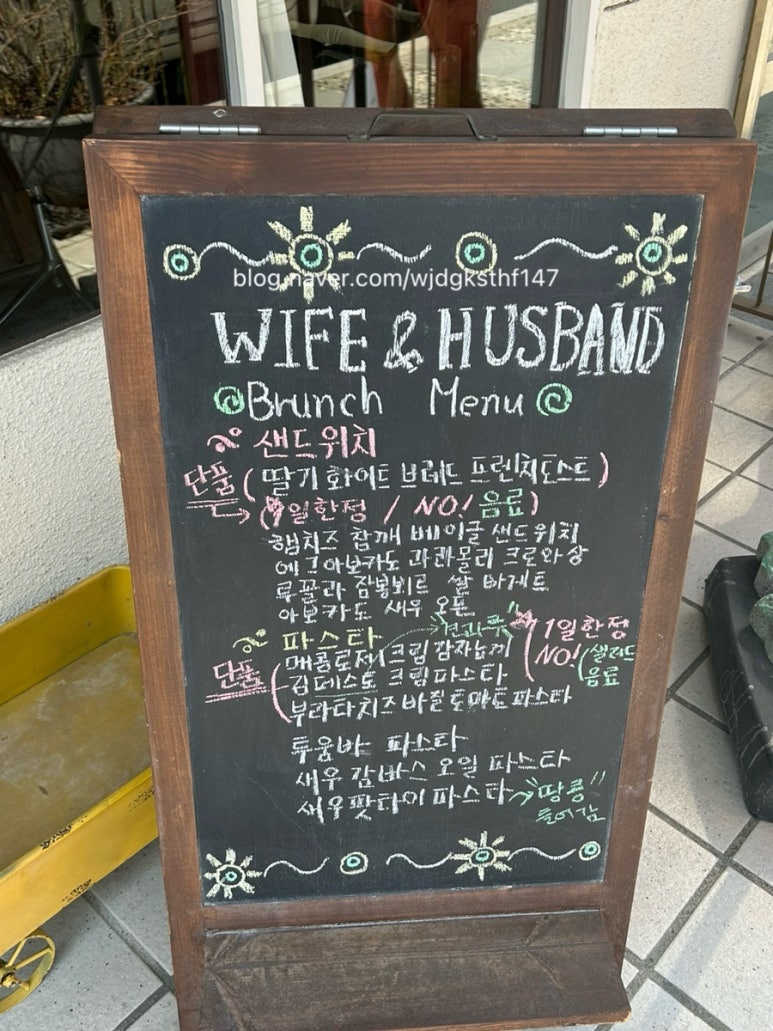 blog.naver.com/wjdgksthf147
WIFE & HUSBAND
Brunch Menu
샌드위치
단품 (딸기 화이트 브레드 프렌치토스트)
(1일한정 / NO! 음료)
햄치즈 참깨 베이글 샌드위치
에그아보카도 과콰몰리 크로와상
루꼴라 잠봉뵈르 쌀 바게트
아보카도 새우 오픈
파스타 견과류!! 1일한정
단품 매콤로제 크림 감자뇨끼 NO! 샐러드
김페스토 크림파스타 음료
부라타치즈 바질 토마토 파스타
투움바 파스타
새우 감바스 오일 파스타
새우팟타이 파스타 땅콩!!
들어감